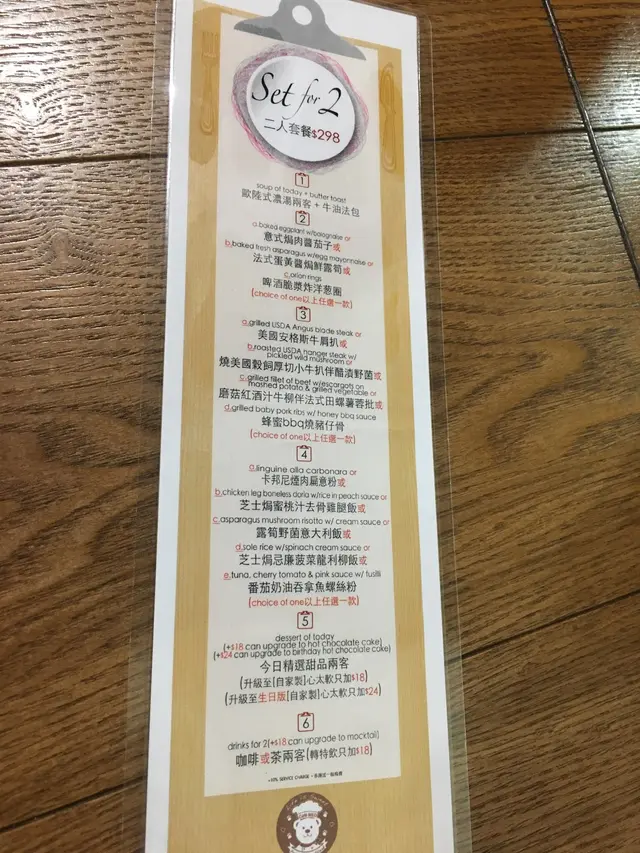 Set for 2
二人套餐$298
1
soup of today + butter toast
歐陸式濃湯兩客 + 牛油法包
2
a.baked eggplant w/bolognaise or
意式焗肉醬茄子或
b.baked fresh asparagus w/egg mayonnaise or
法式蛋黃醬焗鮮露筍或
c.onion rings
啤酒脆漿炸洋葱圈
(choice of one以上任選一款)
3
a.grilled USDA Angus blade steak or
美國安格斯牛肩扒或
b.roasted USDA hanger steak w/
pickled wild mushroom or
燒美國穀飼厚切小牛扒伴醋漬野菌或
c.grilled fillet of beef w/escargots on
mashed potato & grilled vegetable or
磨菇紅酒汁牛柳伴法式田螺薯蓉批或
d.grilled baby pork ribs w/ honey bbq sauce
蜂蜜bbq燒豬仔骨
(choice of one以上任選一款)
4
a.linguine alla carbonara or
卡邦尼煙肉扁意粉或
b.chicken leg boneless doria w/rice in peach sauce or
芝士焗蜜桃汁去骨雞腿飯或
c.asparagus mushroom risotto w/ cream sauce or
露筍野菌意大利飯或
d.sole rice w/spinach cream sauce or
芝士焗忌廉菠菜龍利柳飯或
e.tuna, cherry tomato & pink sauce w/ fusilli
番茄奶油吞拿魚螺絲粉
(choice of one以上任選一款)
5
dessert of today
(+$18 can upgrade to hot chocolate cake)
(+$24 can upgrade to birthday hot chocolate cake)
今日精選甜品兩客
(升級至[自家製]心太軟只加$18)
(升級至生日版[自家製]心太軟只加$24)
6
drinks for 2(+$18 can upgrade to mocktail)
咖啡或茶兩客(轉特飲只加$18)
+10% SERVICE CHARGE